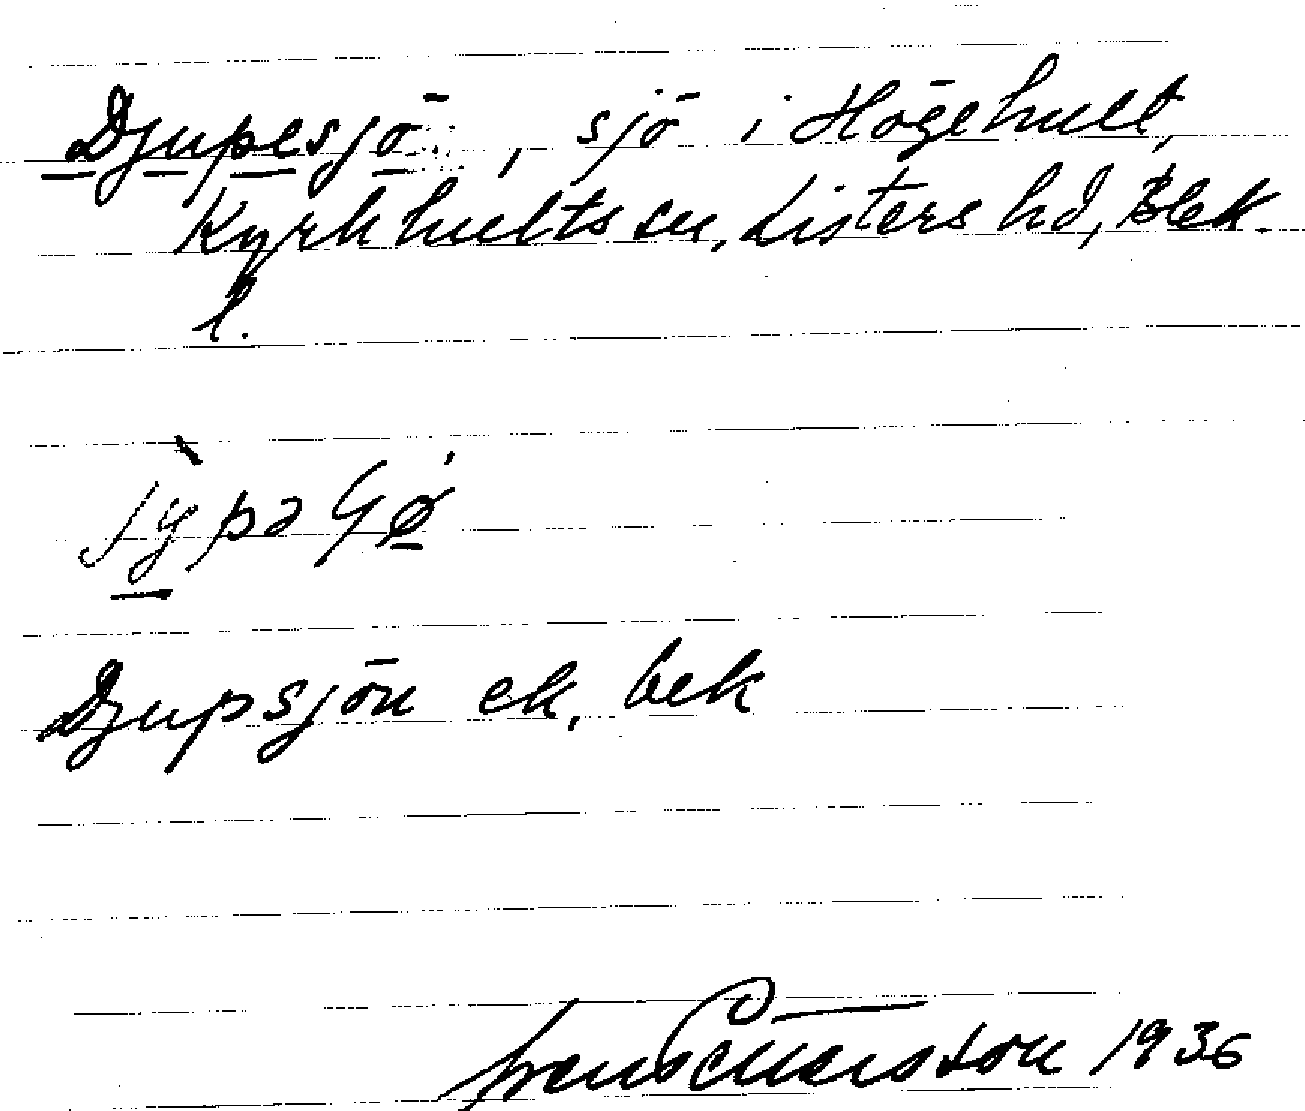 Djupesjö, sjö i Högehult,
Kyrkhults sn, Listers hd, Blek.
l.
Djupsjön ek. bek
1936